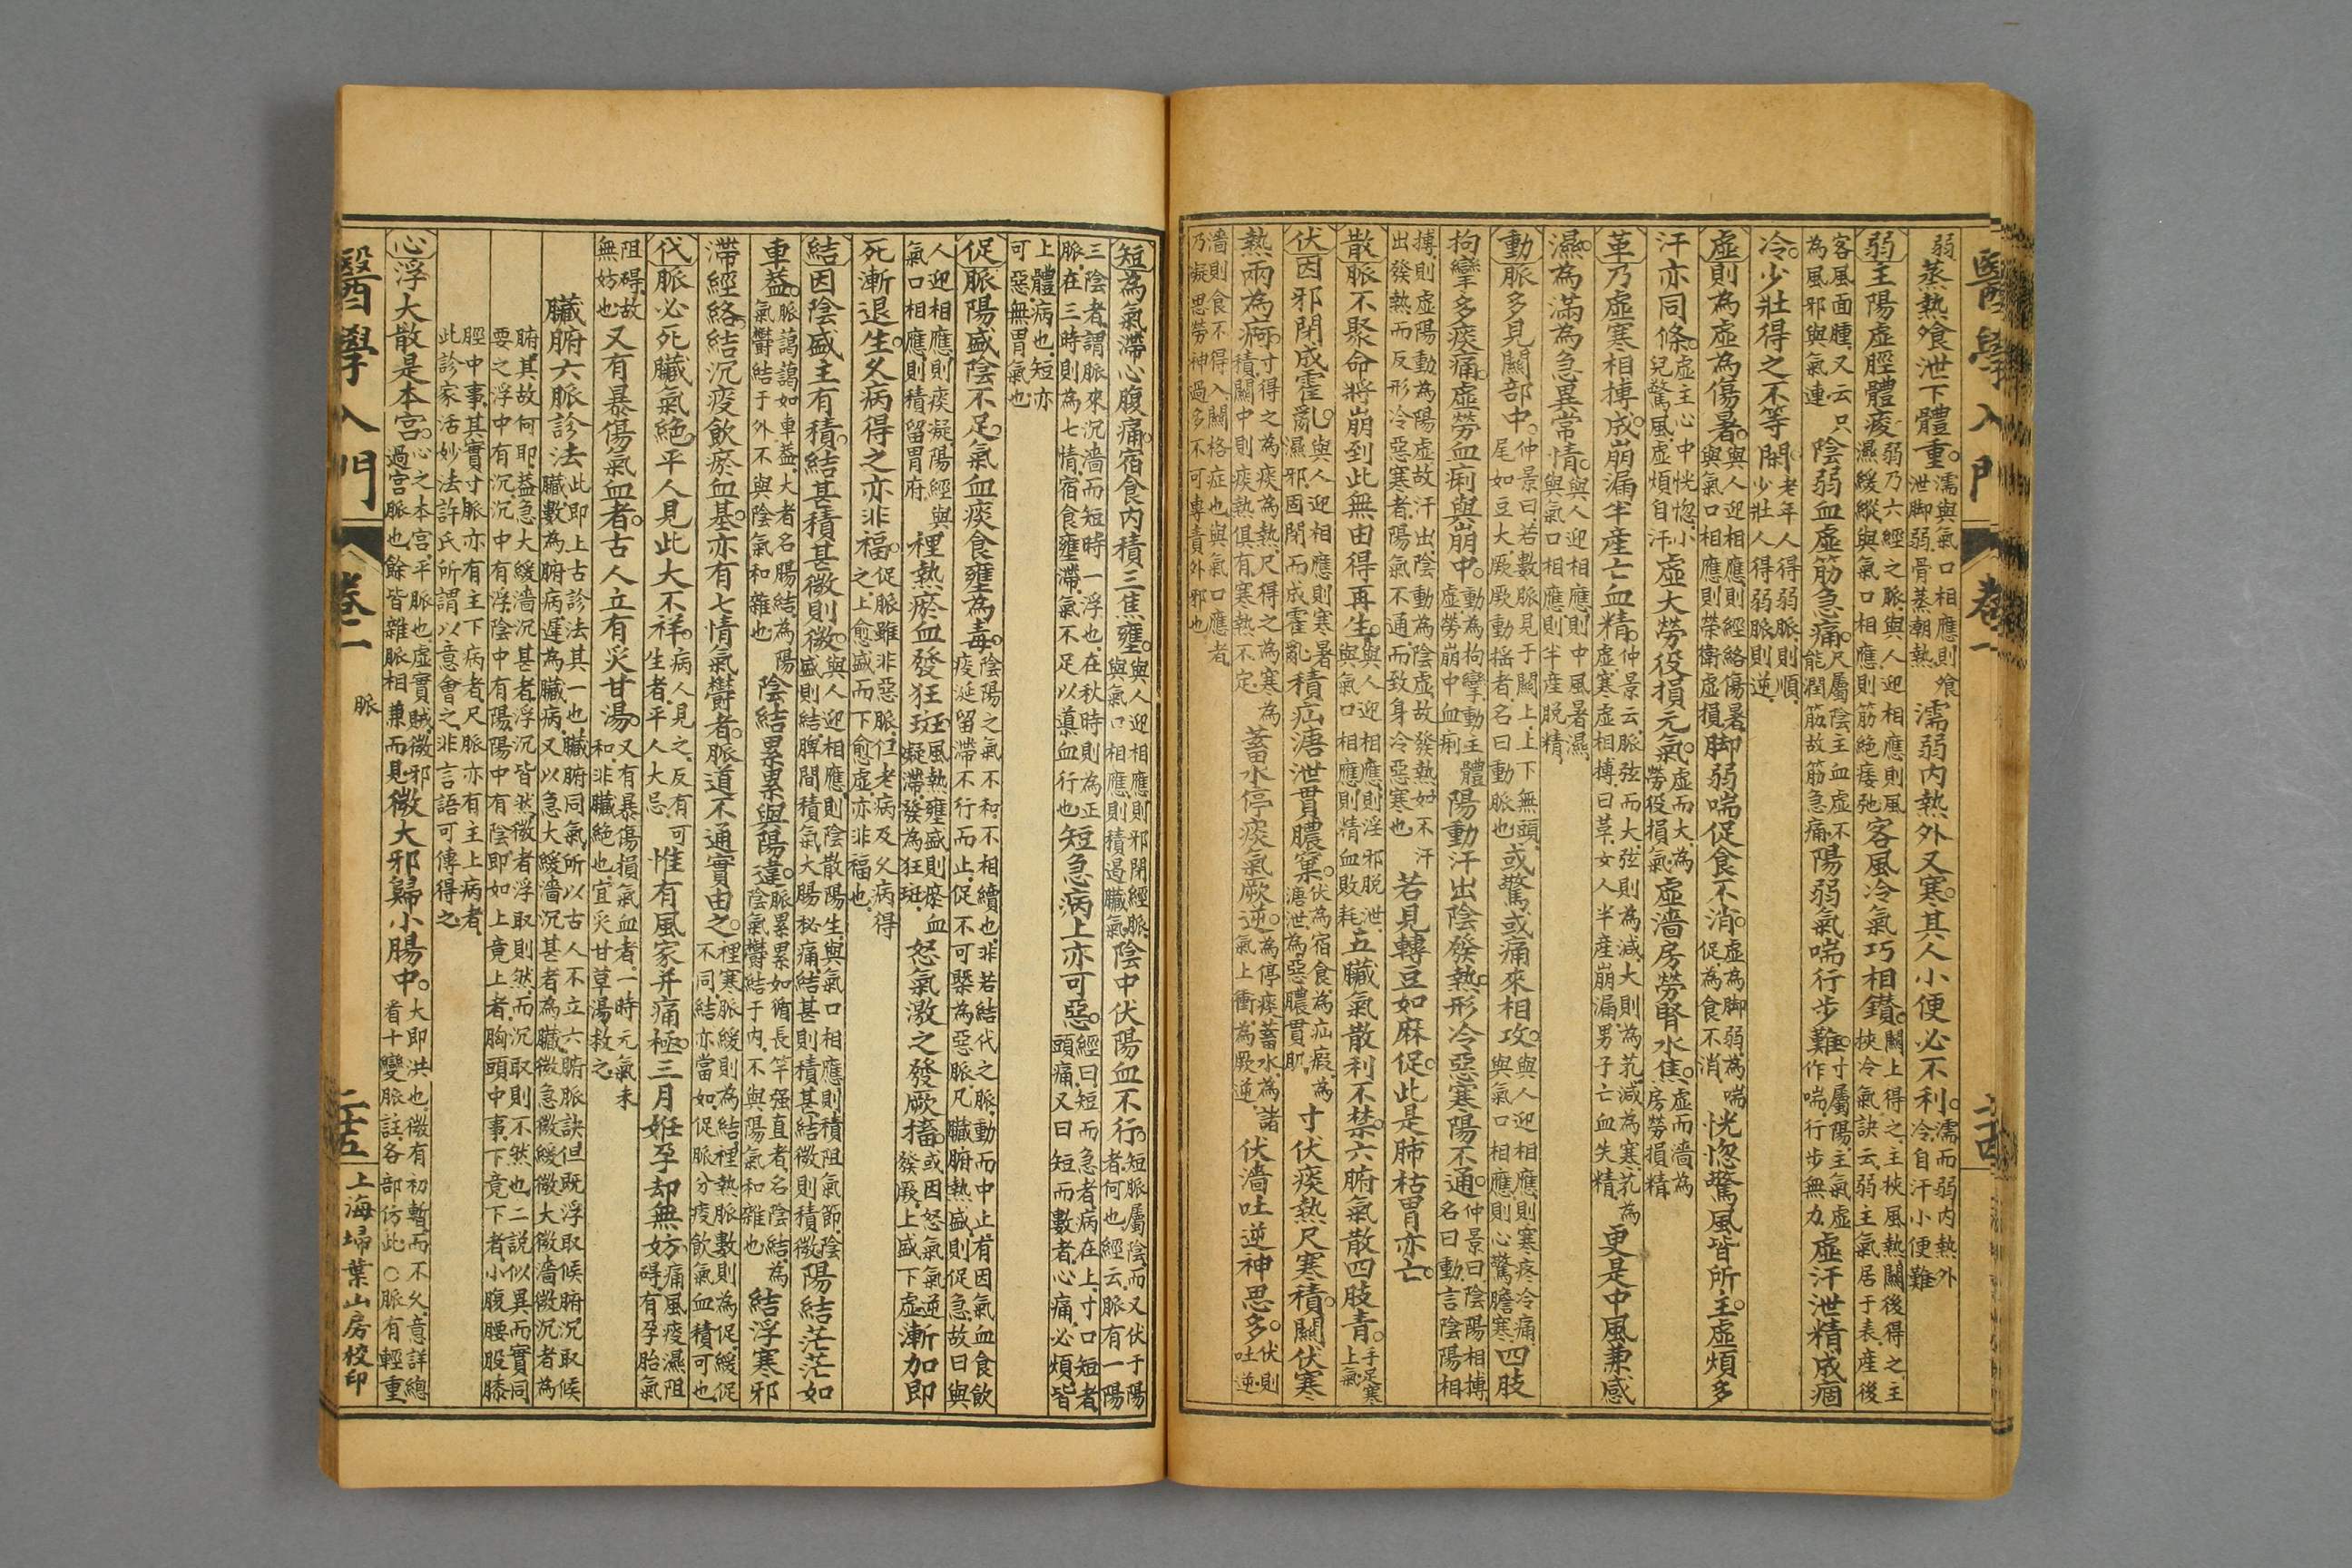 醫學入門 卷一
弱蒸熱飧泄下體重。濡與氣口相應則飧泄脚弱骨蒸潮熱濡弱內熱外又寒其人小便必不利。濡而弱內熱外冷自汗小便難
弱主陽虛脛體痠弱乃六經之脈與人迎相應則風濕緩縱與氣口相應則筋絕痿弛客風冷氣巧相鑽。關上得之主挾風熱關後得之主挾冷氣訣云弱主氣居于表產後
客風面腫又云只為風邪與氣連陰弱血虛筋急痛。尺屬陰主血虛不能潤筋故筋急痛陽弱氣喘行步難。寸屬陽主氣虛作喘行步無力虛汗泄精成痼
冷。少壯得之不等閑老年人得弱脈則順少壯人得弱脈則逆
虛則為虛為傷暑。與人迎相應則經絡傷暑與氣口相應則榮衛虛損脚弱喘促食不消。虛為脚弱為喘促為食不消恍惚驚風皆所主。虛煩多
汗亦同條虛主心中恍惚小兒驚風虛煩自汗虛大勞役損元氣。虛而大為勞役損氣虛濇房勞腎水焦。虛而濇為房勞損精
革乃虛寒相搏成。崩漏半產亡血精。仲景云脈弦而大弦則為減大則為芤減為寒芤為虛寒虛相搏曰革女人半產崩漏男子亡血失精更是中風兼感
濕。為滿為急異常情。與人迎相應則中風暑濕與氣口相應則半產脫精
動脈多見關部中。仲景曰若數脈見于關上上下無頭尾如豆大厥厥動搖者名曰動脈也或驚或痛來相攻。與人迎相應則寒疼冷痛與氣口相應則心驚膽寒四肢
拘攣多痰痛。虛勞血痢與崩中。動為拘攣動主體虛勞崩中血痢陽動汗出陰發熱。形冷惡寒陽不通。仲景曰陰陽相搏名曰動言陰陽相
搏則虛陽動為陽虛故汗出陰動為陰虛故發熱如不汗出發熱而反形冷惡寒者陽氣不通而致身冷惡寒也若見轉豆如麻促。此是肺枯胃亦亡。
散脈不聚命將崩到此無由得再生。與人迎相應則淫邪脫泄與氣口相應則精血敗耗五臟氣散利不禁六腑氣散四肢青。手足寒上氣
伏因邪閉成霍亂。與人迎相應則寒暑濕邪固閉而成霍亂積疝溏泄貫膿窠。伏為宿食為疝瘕為溏泄為惡膿貫肌寸伏痰熱尺寒積。關伏寒
熱兩為痾。寸得之為痰為熱尺得之為寒為積關中則痰熱俱有寒熱不定蓄水停痰氣厥逆。為停痰蓄水為諸氣上衝為厥逆伏濇吐逆神思多。伏則吐逆
濇則食不得入關格症也與氣口應者乃凝思勞神過多不可專責外邪也
短為氣滯心腹痛。宿食內積三焦壅。與人迎相應則邪閉經脈與氣口相應則積遏臟氣陰中伏陽血不行。短脈屬陰而又伏于陽者何也經云脈有一陽
三陰者謂脈來沉濇而短時一浮也在秋時則為正脈在三時則為七情宿食壅滯氣不足以導血行也短急病上亦可惡。經曰短而急者病在上寸口短者頭痛又曰短而數者心痛必煩皆
上體病也短亦可惡無胃氣也
促脈陽盛陰不足。氣血痰食壅為毒。陰陽之氣不和不相續也非若結代之脈動而中止有因氣血食飲痰涎留滯不行而止促不可槩為惡脈凡臟腑熱盛則促急故曰與
人迎相應則痰凝陽經與氣口相應則積留胃府裡熱瘀血發狂斑風熱壅盛則瘀血凝滯發為狂斑怒氣激之發厥搐。或因怒氣氣逆發厥上盛下虛漸加即
死漸退生。久病得之亦非福。促脈雖非惡脈但老病及久病得之上愈盛而下愈虛亦非福也
結因陰盛主有積。結甚積甚微則微。與人迎相應則陰散陽生與氣口相應則積阻氣節陰盛則結脾間積氣大腸秘痛結甚則積甚結微則積微陽結茫茫如
車蓋。脈藹藹如車蓋大者名陽結為陽氣鬱結于外不與陰氣和雜也陰結累累與陽違。脈累累如循長竿强直者名陰結為陰氣鬱結于內不與陽氣和雜也結浮寒邪
滯經絡結沉痰飲瘀血基。亦有七情氣鬱者。脈道不通實由之。裡寒脈緩則為結裡熱脈數則為促緩促不同結亦當如促脈分痰飲氣血積可也
代脈必死臟氣絕。平人見此大不祥。病人見之反有可生者平人大忌惟有風家并痛極三月姙孕却無妨痛風痰濕阻碍有孕胎氣
阻碍故無妨也又有暴傷氣血者。古人立有炙甘湯。又有暴傷損氣血者一時元氣未和非臟絕也宜炙甘草湯救之
臟腑六脈診法此即上古診法其一也臟腑同氣所以古人不立六腑脈訣但既浮取候腑沉取候臟數為腑病遲為臟病又以急大緩濇沉甚者為臟微急微緩微大微濇微沉者為
腑其故何耶蓋急大緩濇沉甚者浮沉皆然微者浮取則然而沉取則不然也二説似異而實同要之浮中有沉沉中有浮陰中有陽陽中有陰即如上竟上者胸頭中事下竟下者小腹腰股膝
脛中事其實寸脈亦有主下病者尺脈亦有主上病者此診家活妙法許氏所謂以意會之非言語可傳得之
心浮大散是本宮。心之本宮平脈也虛實賊微邪過宮脈也餘皆雜脈相兼而見微大邪歸小腸中。大即洪也微有初暫而不久意詳總看十變脈註各部仿此○脈有輕重
醫學入門 卷一 脈 二十五 上海埽葉山房校印